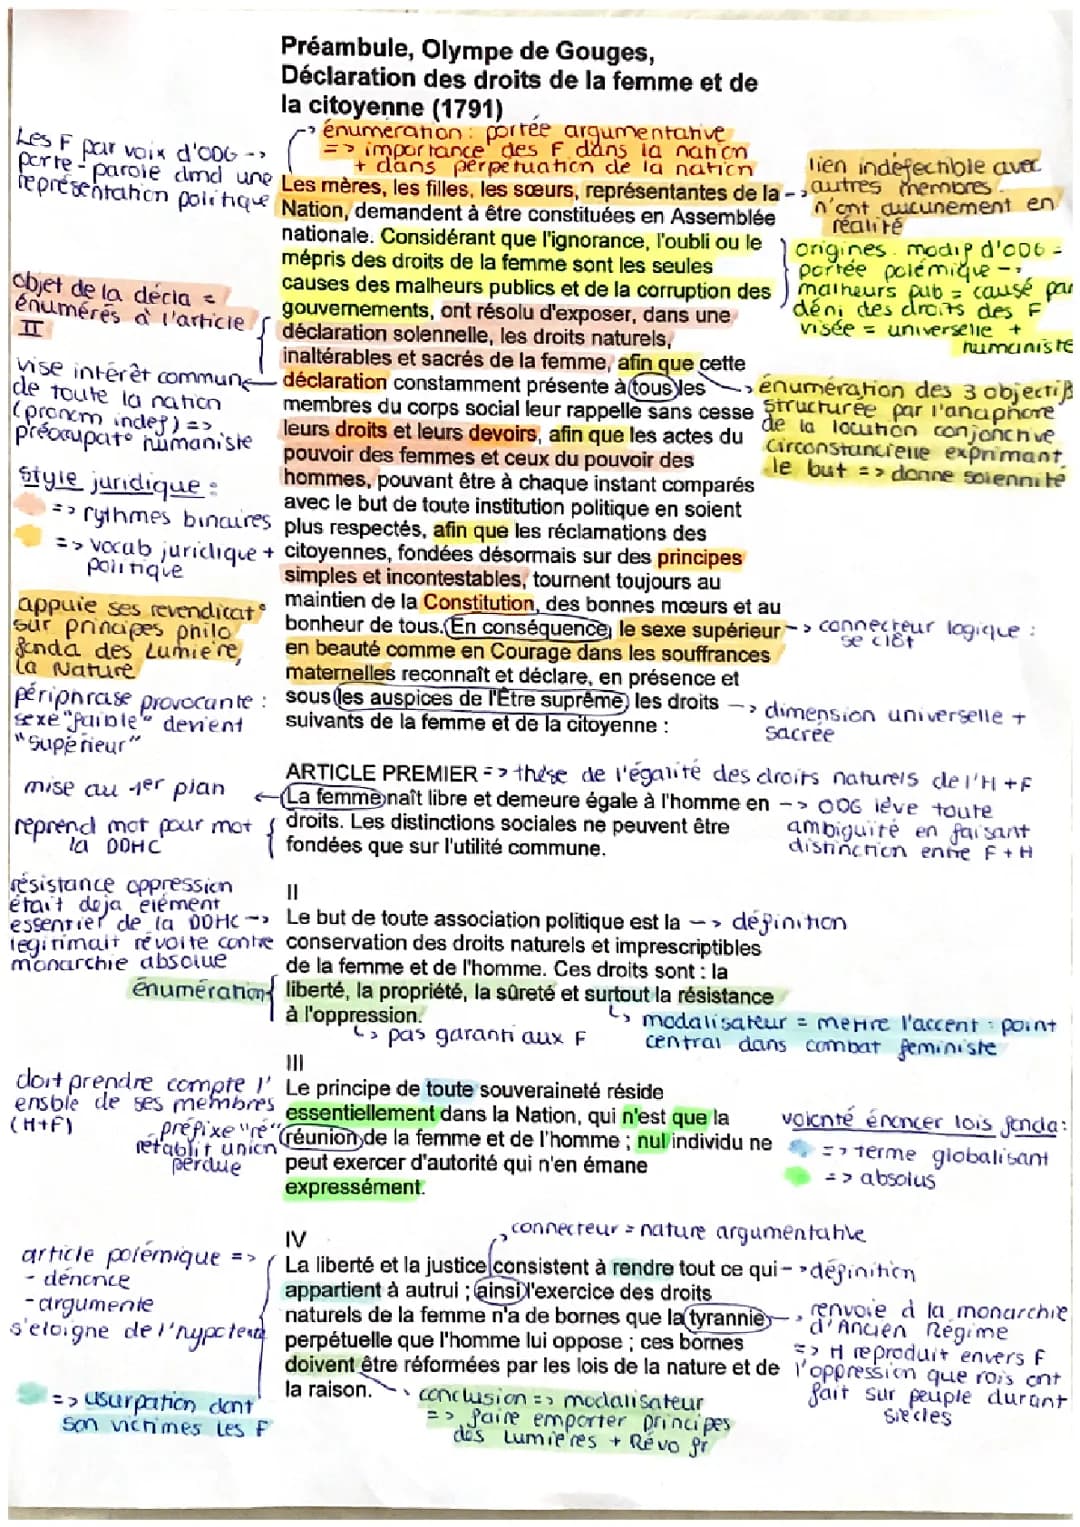 Préambule, Olympe de Gouges,
Déclaration des droits de la femme et de
la citoyenne (1791)
-> énumération : portée argumentative
=> importance des F dans la nation
+ dans perpétuation de la nation
Les F par voix d'ODG -->
porte-parole dmd une
représentation politique
Les mères, les filles, les sœurs, représentantes de la
Nation, demandent à être constituées en Assemblée
nationale. Considérant que l'ignorance, l'oubli ou le
mépris des droits de la femme sont les seules
causes des malheurs publics et de la corruption des
gouvernements, ont résolu d'exposer, dans une
déclaration solennelle, les droits naturels,
inaltérables et sacrés de la femme, afin que cette
déclaration constamment présente à tous les
membres du corps social leur rappelle sans cesse
leurs droits et leurs devoirs, afin que les actes du
pouvoir des femmes et ceux du pouvoir des
hommes, pouvant être à chaque instant comparés
avec le but de toute institution politique en soient
plus respectés, afin que les réclamations des
citoyennes, fondées désormais sur des principes
simples et incontestables, tournent toujours au
maintien de la Constitution, des bonnes mœurs et au
bonheur de tous. En conséquence, le sexe supérieur
en beauté comme en Courage dans les souffrances
maternelles reconnaît et déclare, en présence et
sous les auspices de l'Être suprême, les droits
suivants de la femme et de la citoyenne :
lien indéfectible avec
autres membres.
n'ont aucunement en
réalité
origines. modif d'ODG =
portée polémique -->
malheurs pub = causé par
déni des droits des F
visée = universelle +
humaniste
objet de la décla =
énumérés à l'article
II
vise intérêt commun
de toute la nation
(pronom indef) =>
préoccupat° humaniste
énumération des 3 objectifs
structurée par l'anaphore
de la locution conjonctive
circonstancielle exprimant
le but => donne solennité
style juridique :
=> rythmes binaires
=> vocab juridique +
politique
appuie ses revendicat°
sur principes philo
fonda des Lumière,
la Nature
périphrase provocante :
sexe "faible" devient
"supérieur"
-> connecteur logique :
se clôt
--> dimension universelle +
sacrée
ARTICLE PREMIER => thèse de l'égalité des droits naturels de l'H + F
mise au 1er plan
La femme naît libre et demeure égale à l'homme en
droits. Les distinctions sociales ne peuvent être
fondées que sur l'utilité commune.
reprend mot pour mot
la DDHC
--> ODG lève toute
ambiguité en faisant
distinction entre F + H
résistance oppression
était deja élément
essentiel de la DDHC -->
légitimait révolte contre
monarchie absolue
II
Le but de toute association politique est la --> définition
conservation des droits naturels et imprescriptibles
de la femme et de l'homme. Ces droits sont : la
énumération
liberté, la propriété, la sûreté et surtout la résistance
à l'oppression.
-> pas garanti aux F
-> modalisateur = mettre l'accent : point
central dans combat feministe
III
doit prendre compte l'
ensble de ses membres
(H+F)
Le principe de toute souveraineté réside
essentiellement dans la Nation, qui n'est que la
réunion de la femme et de l'homme ; nul individu ne
peut exercer d'autorité qui n'en émane
expressément.
préfixe "ré"
rétablit union
perdue
volonté énoncer lois fonda :
=> terme globalisant
=> absolus
IV
connecteur = nature argumentative
La liberté et la justice consistent à rendre tout ce qui --> définition
appartient à autrui ; ainsi l'exercice des droits
naturels de la femme n'a de bornes que la tyrannie
perpétuelle que l'homme lui oppose ; ces bornes
doivent être réformées par les lois de la nature et de
la raison.
article polémique =>
- dénonce
- argumente
s'eloigne de l'hypotexte
=> usurpation dont
son victimes les F
renvoie à la monarchie
d'Ancien Régime
=> H reproduit envers F
l'oppression que rois ont
fait sur peuple durant
siècles
conclusion => modalisateur
=> faire emporter principes
des Lumières + Révo fr